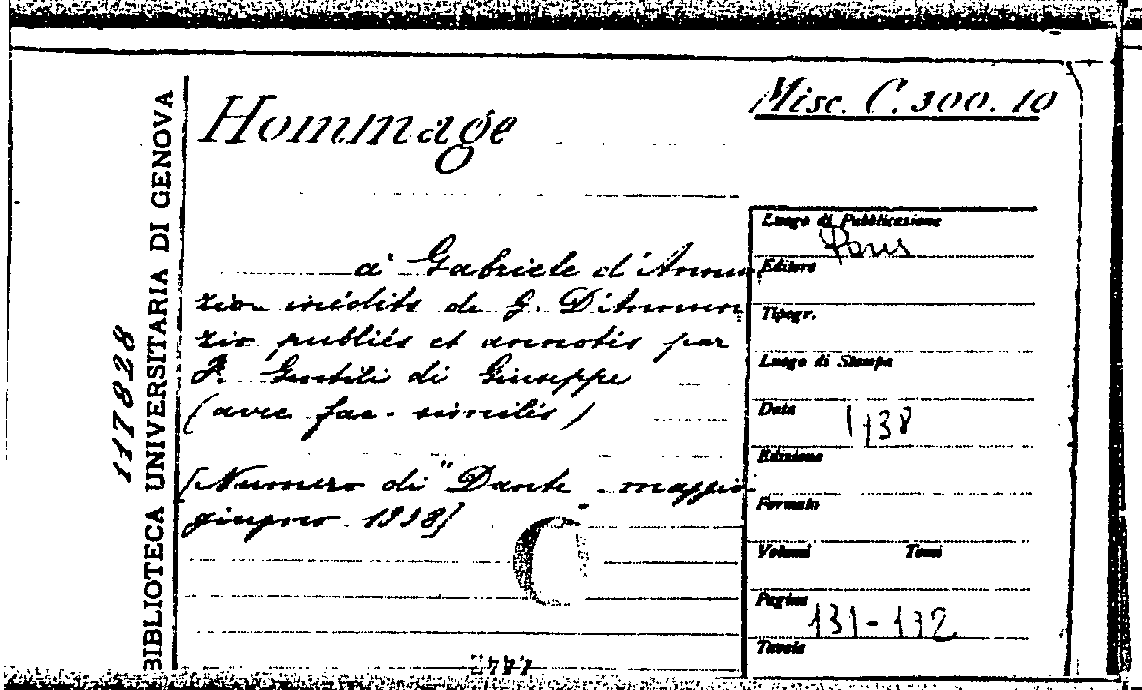 Hommage
Misc. C. 300. 10
à Gabriele d'Annun
zio inédits de G. D'Annun
zio publiés et annotés par
P. Gentili di Giuseppe
(avec fac-similés)
[Numero di "Dante maggio
giugno 1938]
BIBLIOTECA UNIVERSITARIA DI GENOVA
117828
Luogo di Pubblicazione
Paris
Editore
Tipogr.
Luogo di Stampa
Data 1938
Edizione
Formato
Volumi Tomi
Pagine
131-132
Tavole